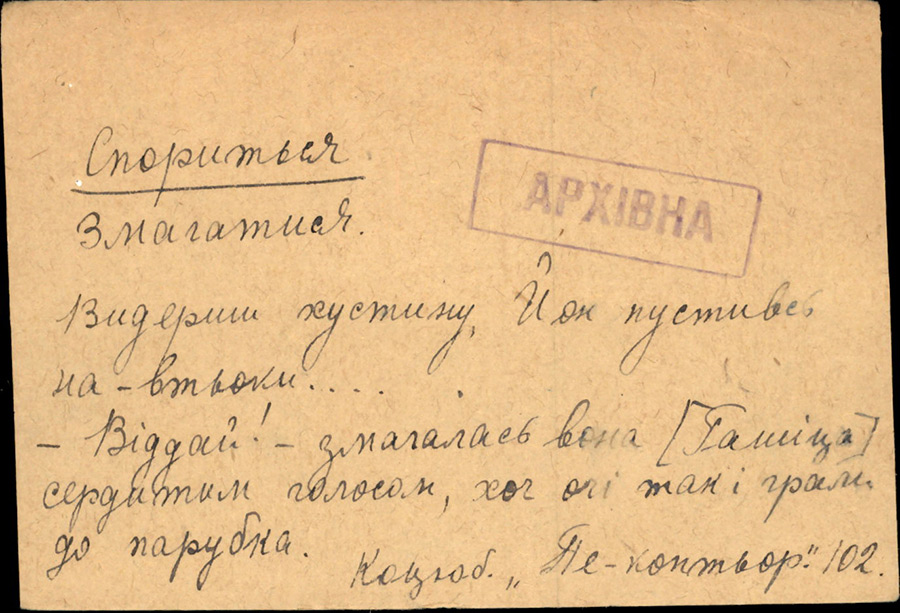 Спориться
АРХІВНА
Змагатися.
Видерши хустину, Йон пустивсь
на-втьоки.....
- Віддай! - змагалась вона [Гашіца]
сердитим голосом, хоч очі так і грали
до парубка.
Коцюб. „Пе-коптьор." 102.